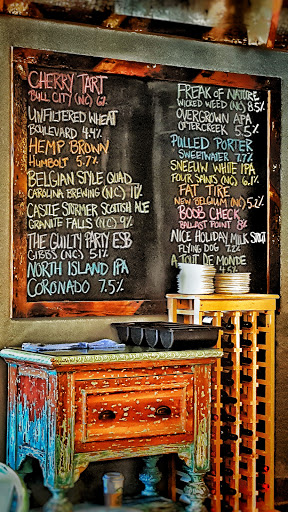 CHERRY TART
BULL CITY (NC) 6%
UNFILTERED WHEAT
BOULEVARD 4.4%
HEMP BROWN
HUMBOLT 5.7%
BELGIAN STYLE QUAD
CAROLINA BREWING (NC) 11%
CASTLE STORMER SCOTTISH ALE
GRANITE FALLS (NC) 9%
THE GUILTY PARTY ESB
GIBBS (NC) 5.1%
NORTH ISLAND IPA
CORONADO 7.5%
FREAK OF NATURE
WICKED WEED (NC) 8.5%
OVERGROWN APA
OTTERCREEK 5.5%
PULLED PORTER
SWEETWATER 7.7%
SNEEUW WHITE IPA
FOUR SAINTS (NC) 6.1%
FAT TIRE
NEW BELGIUM (NC) 5.2%
BOOB CHECK
BALLAST POINT 8%
NICE HOLIDAY MILK STOUT
FLYING DOG 7.2%
A TOUT DE MONDE
4.5%